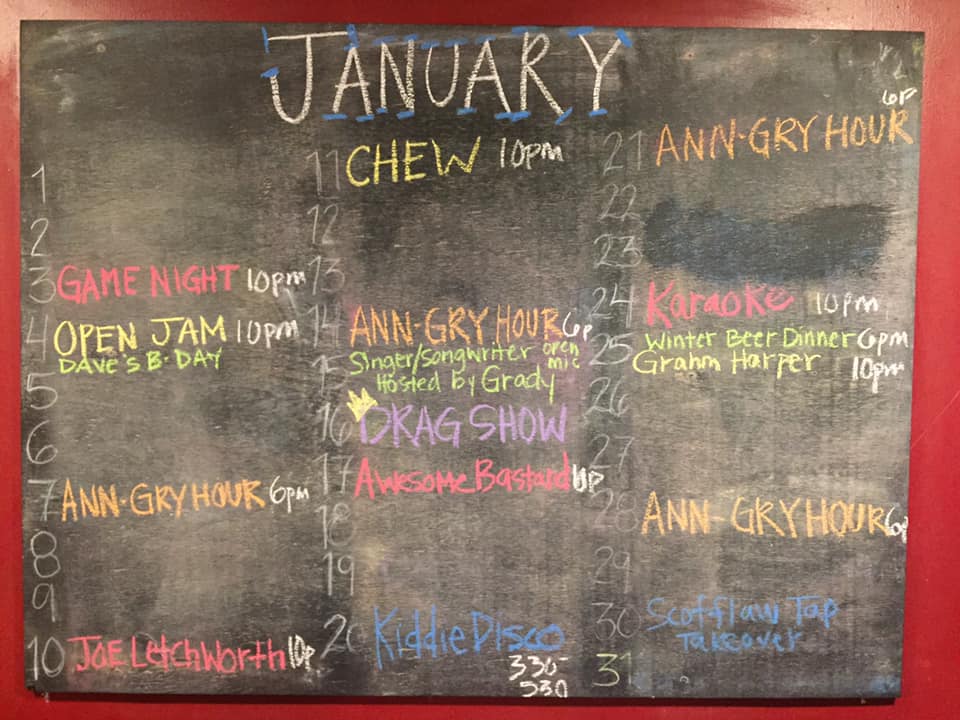 JANUARY
1
2
3 GAME NIGHT 10pm
4 OPEN JAM 10pm
DAVE'S B-DAY
5
6
7 ANN-GRY HOUR 6pm
8
9
10 JOE LetchWorth 10p
11 CHEW 10pm
12
13
14 ANN-GRY HOUR 6p
15 Singer/songwriter open mic
Hosted by Grady
16 DRAG SHOW
17 Awesome Bastard
18
19
20 Kiddie Disco
330-
530
6P
21 ANN-GRY HOUR
22
23
24 Karaoke 10pm
Winter Beer Dinner 6pm
25 Grahm Harper 10pm
26
27
28 ANN-GRY HOUR 6p
29
30 Scofflaw Tap
Takeover
31